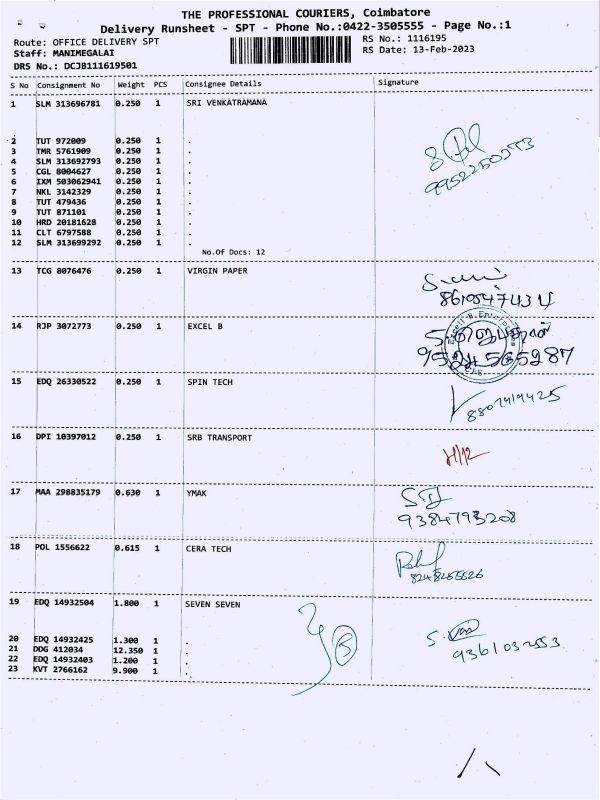 THE PROFESSIONAL COURIERS, Coimbatore
Delivery Runsheet - SPT - Phone No.:0422-3505555 - Page No.:1
Route: OFFICE DELIVERY SPT
RS No.: 1116195
Staff: MANIMEGALAI
RS Date: 13-Feb-2023
DRS No.: DCJB111619501
S No Consignment No Weight PCS Consignee Details Signature
1 SLM 313696781 0.250 1 SRI VENKATRAMANA
2 TUT 972009 0.250 1 .
3 TMR 5761909 0.250 1 .
4 SLM 313692793 0.250 1 .
5 CGL 8004627 0.250 1 .
6 IXM 503062941 0.250 1 .
7 NKL 3142329 0.250 1 .
8 TUT 479436 0.250 1 .
9 TUT 871101 0.250 1 .
10 HRD 20181628 0.250 1 .
11 CLT 6797588 0.250 1 .
12 SLM 313699292 0.250 1 .
No.Of Docs: 12
13 TCG 8076476 0.250 1 VIRGIN PAPER
14 RJP 3072773 0.250 1 EXCEL B
15 EDQ 26330522 0.250 1 SPIN TECH
8807419425
16 DPI 10397012 0.250 1 SRB TRANSPORT
H/12
17 MAA 298835179 0.630 1 YMAK
9384793208
18 POL 1556622 0.615 1 CERA TECH
19 EDQ 14932504 1.800 1 SEVEN SEVEN
20 EDQ 14932425 1.300 1 .
21 DDG 412034 12.350 1 .
22 EDQ 14932403 1.200 1 .
23 KVT 2766162 9.900 1 .